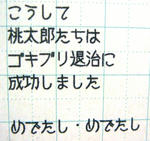 こうして
桃太郎たちは
ゴキブリ退治に
成功しました
めでたし・めでたし